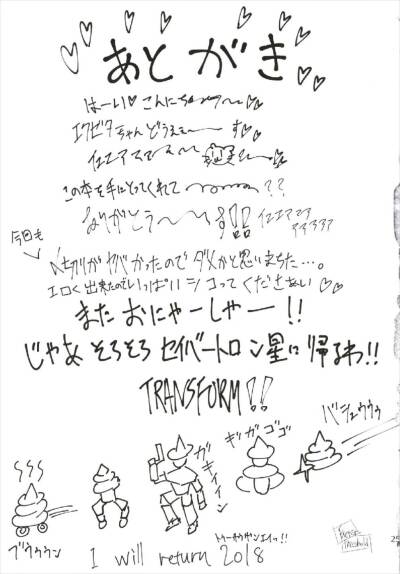 あとがき
はーい♡こんにちわ〜♡♡
エクゼタちゃんどうえぇーす♡
イエエアエエ
この本を手にとってくれて〜??
ありがとう〜す!!
イエエエアアアアアア
今回も
〆切りがヤバかったのでダメかと思いまちた…。
エロく出来たのでいっぱいシコってくださぁい♡♡
またおにゃーしゃー!!
じゃあそろそろセイバートロン星に帰るわ!!
TRANSFORM!!
バシュウウウ
ギガゴゴ
ガキィイン
ブウウウン
I will return 2018